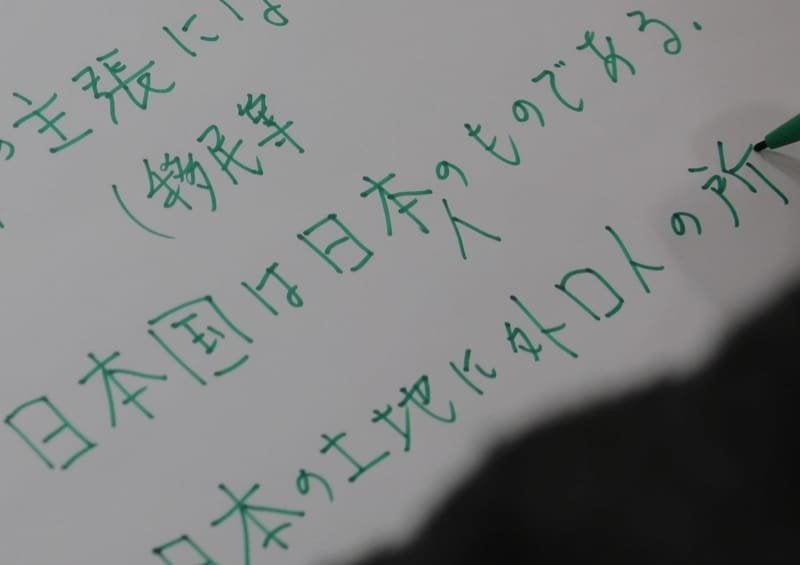 主張には
(移民等
日本国は日本人のものである.
日本の土地に外口人の所